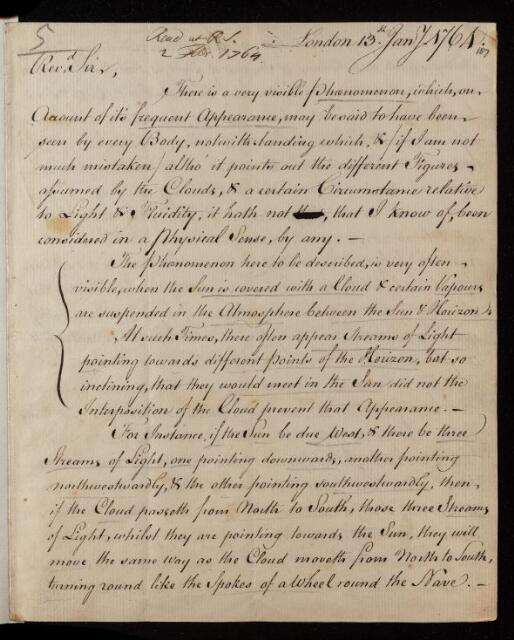 5
Read at R.S.
2 Febr. 1764
London 13th Jany. 1764.
107
Revd. Sir,
There is a very visible phænomenon, which, on
Account of it's frequent Appearance, may be said to have been
seen by every Body, notwithstanding which, & (if I am not
much mistaken) altho' it points out the different Figures
assumed by the Clouds, & a certain Circumstance relative
to Light & Fluidity, it hath not, that I know of, been
considered in a physical Sense, by any. —
The phænomenon here to be described, is very often
visible, when the Sun is covered with a Cloud & certain Vapours
are suspended in the Atmosphere between the Sun & Horizon.
At such Times, there often appear Streams of Light
pointing towards different points of the Horizon, but so
inclining, that they would meet in the Sun did not the
Interposition of the Cloud prevent that Appearance. —
For Instance, if the Sun be due West, & there be three
Streams of Light, one pointing downwards, another pointing
northwestwardly, & the other pointing southwestwardly, then,
if the Cloud passeth from North to South, those three Streams
of Light, whilst they are pointing towards the Sun, they will
move the same way as the Cloud moveth from North to South,
turning round like the Spokes of a Wheel round the Nave. —